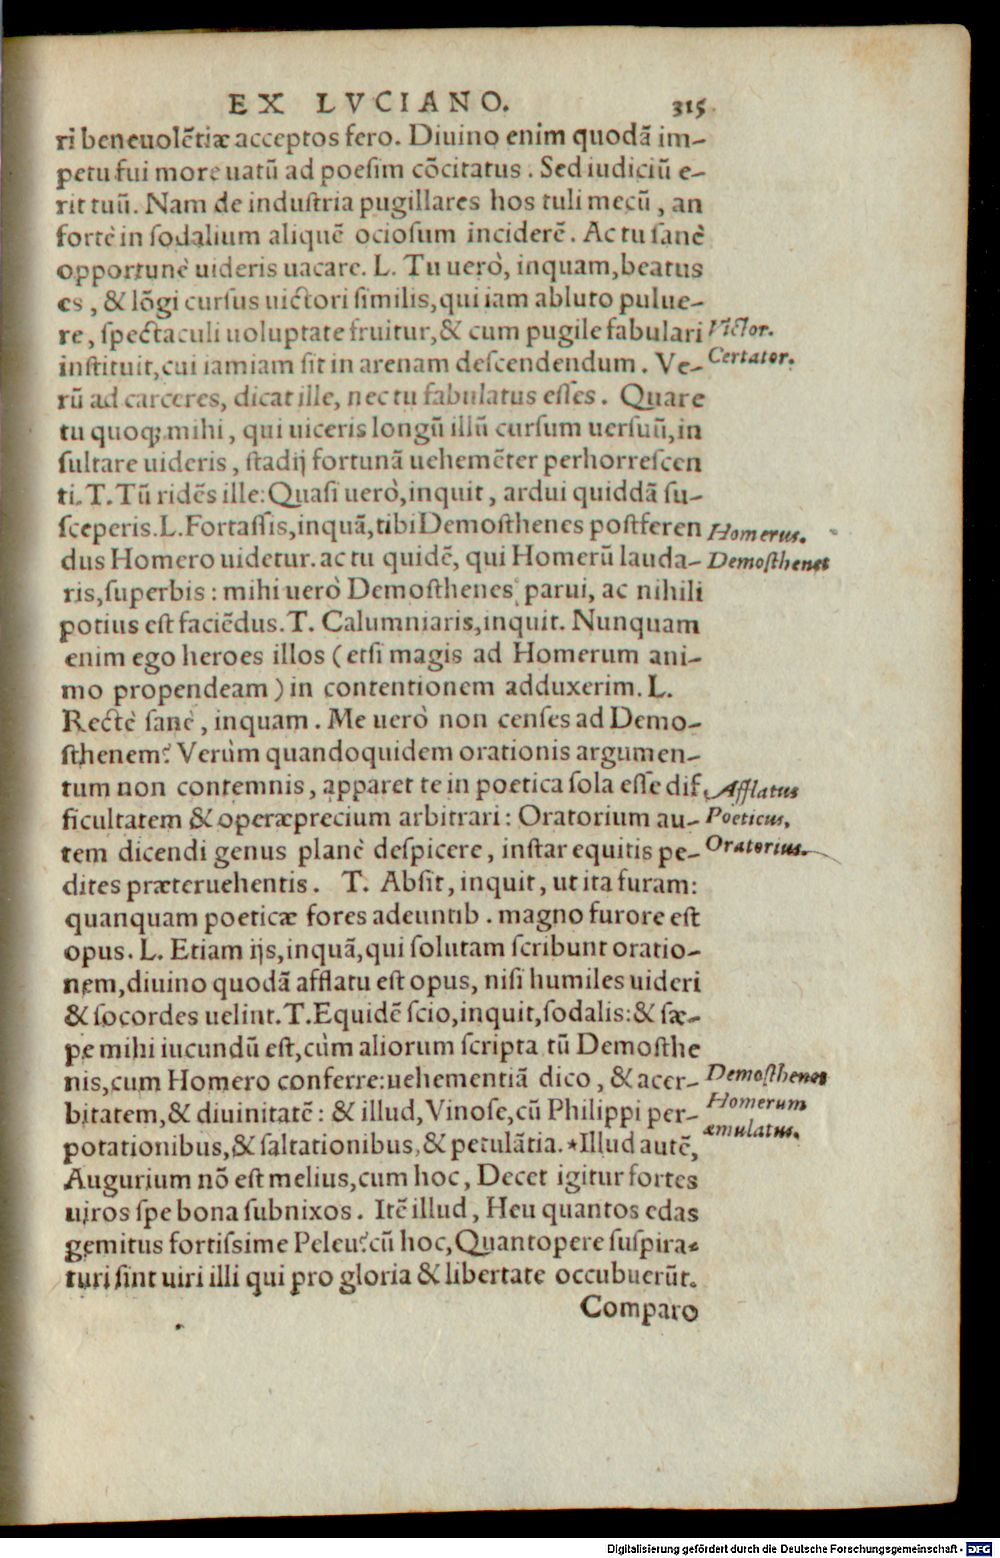 EX LVCIANO. 315
ri beneuolẽtiæ acceptos fero. Diuino enim quodã im-
petu fui more uatũ ad poesim cõcitatus. Sed iudiciũ e-
rit tuũ. Nam de industria pugillares hos tuli mecũ, an
fortè in sodalium aliquẽ ociosum inciderẽ. Ac tu sanè
opportunè uideris uacare. L. Tu uerò, inquam, beatus
es, & lõgi cursus uictori similis, qui iam abluto pulue-
re, spectaculi uoluptate fruitur, & cum pugile fabulari
Victor.
instituit, cui iamiam sit in arenam descendendum. Ve-
Certator.
rũ ad carceres, dicat ille, nec tu fabulatus esses. Quare
tu quoq; mihi, qui uiceris longũ illũ cursum uersuũ, in
sultare uideris, stadij fortunã uehemẽter perhorrescen
ti. T. Tũ ridẽs ille: Quasi uerò, inquit, ardui quiddã su-
sceperis. L. Fortassis, inquã, tibi Demosthenes postferen
Homerus.
dus Homero uidetur. ac tu quidẽ, qui Homerũ lauda-
Demosthenes
ris, superbis: mihi uerò Demosthenes parui, ac nihili
potius est faciẽdus. T. Calumniaris, inquit. Nunquam
enim ego heroes illos (etsi magis ad Homerum ani-
mo propendeam) in contentionem adduxerim. L.
Rectè sanè, inquam. Me uerò non censes ad Demo-
sthenem? Verùm quandoquidem orationis argumen-
tum non contemnis, apparet te in poetica sola esse dif
Afflatus
ficultatem & operæprecium arbitrari: Oratorium au-
Poeticus,
tem dicendi genus planè despicere, instar equitis pe-
Oratorius.
dites præteruehentis. T. Absit, inquit, ut ita furam:
quanquam poeticæ fores adeuntib. magno furore est
opus. L. Etiam ijs, inquã, qui solutam scribunt oratio-
nem, diuino quodã afflatu est opus, nisi humiles uideri
& socordes uelint. T. Equidẽ scio, inquit, sodalis: & sæ-
pe mihi iucundũ est, cùm aliorum scripta tũ Demosthe
nis, cum Homero conferre: uehementiã dico, & acer-
Demosthenes
bitatem, & diuinitatẽ: & illud, Vinose, cũ Philippi per-
Homerum
potationibus, & saltationibus, & petulãtia. *Illud autẽ,
æmulatus.
Augurium nõ est melius, cum hoc, Decet igitur fortes
uiros spe bona subnixos. Itẽ illud, Heu quantos edas
gemitus fortissime Peleu? cũ hoc, Quantopere suspira-
turi sint uiri illi qui pro gloria & libertate occubuerũt.
Comparo
Digitalisierung gefördert durch die Deutsche Forschungsgemeinschaft - DFG